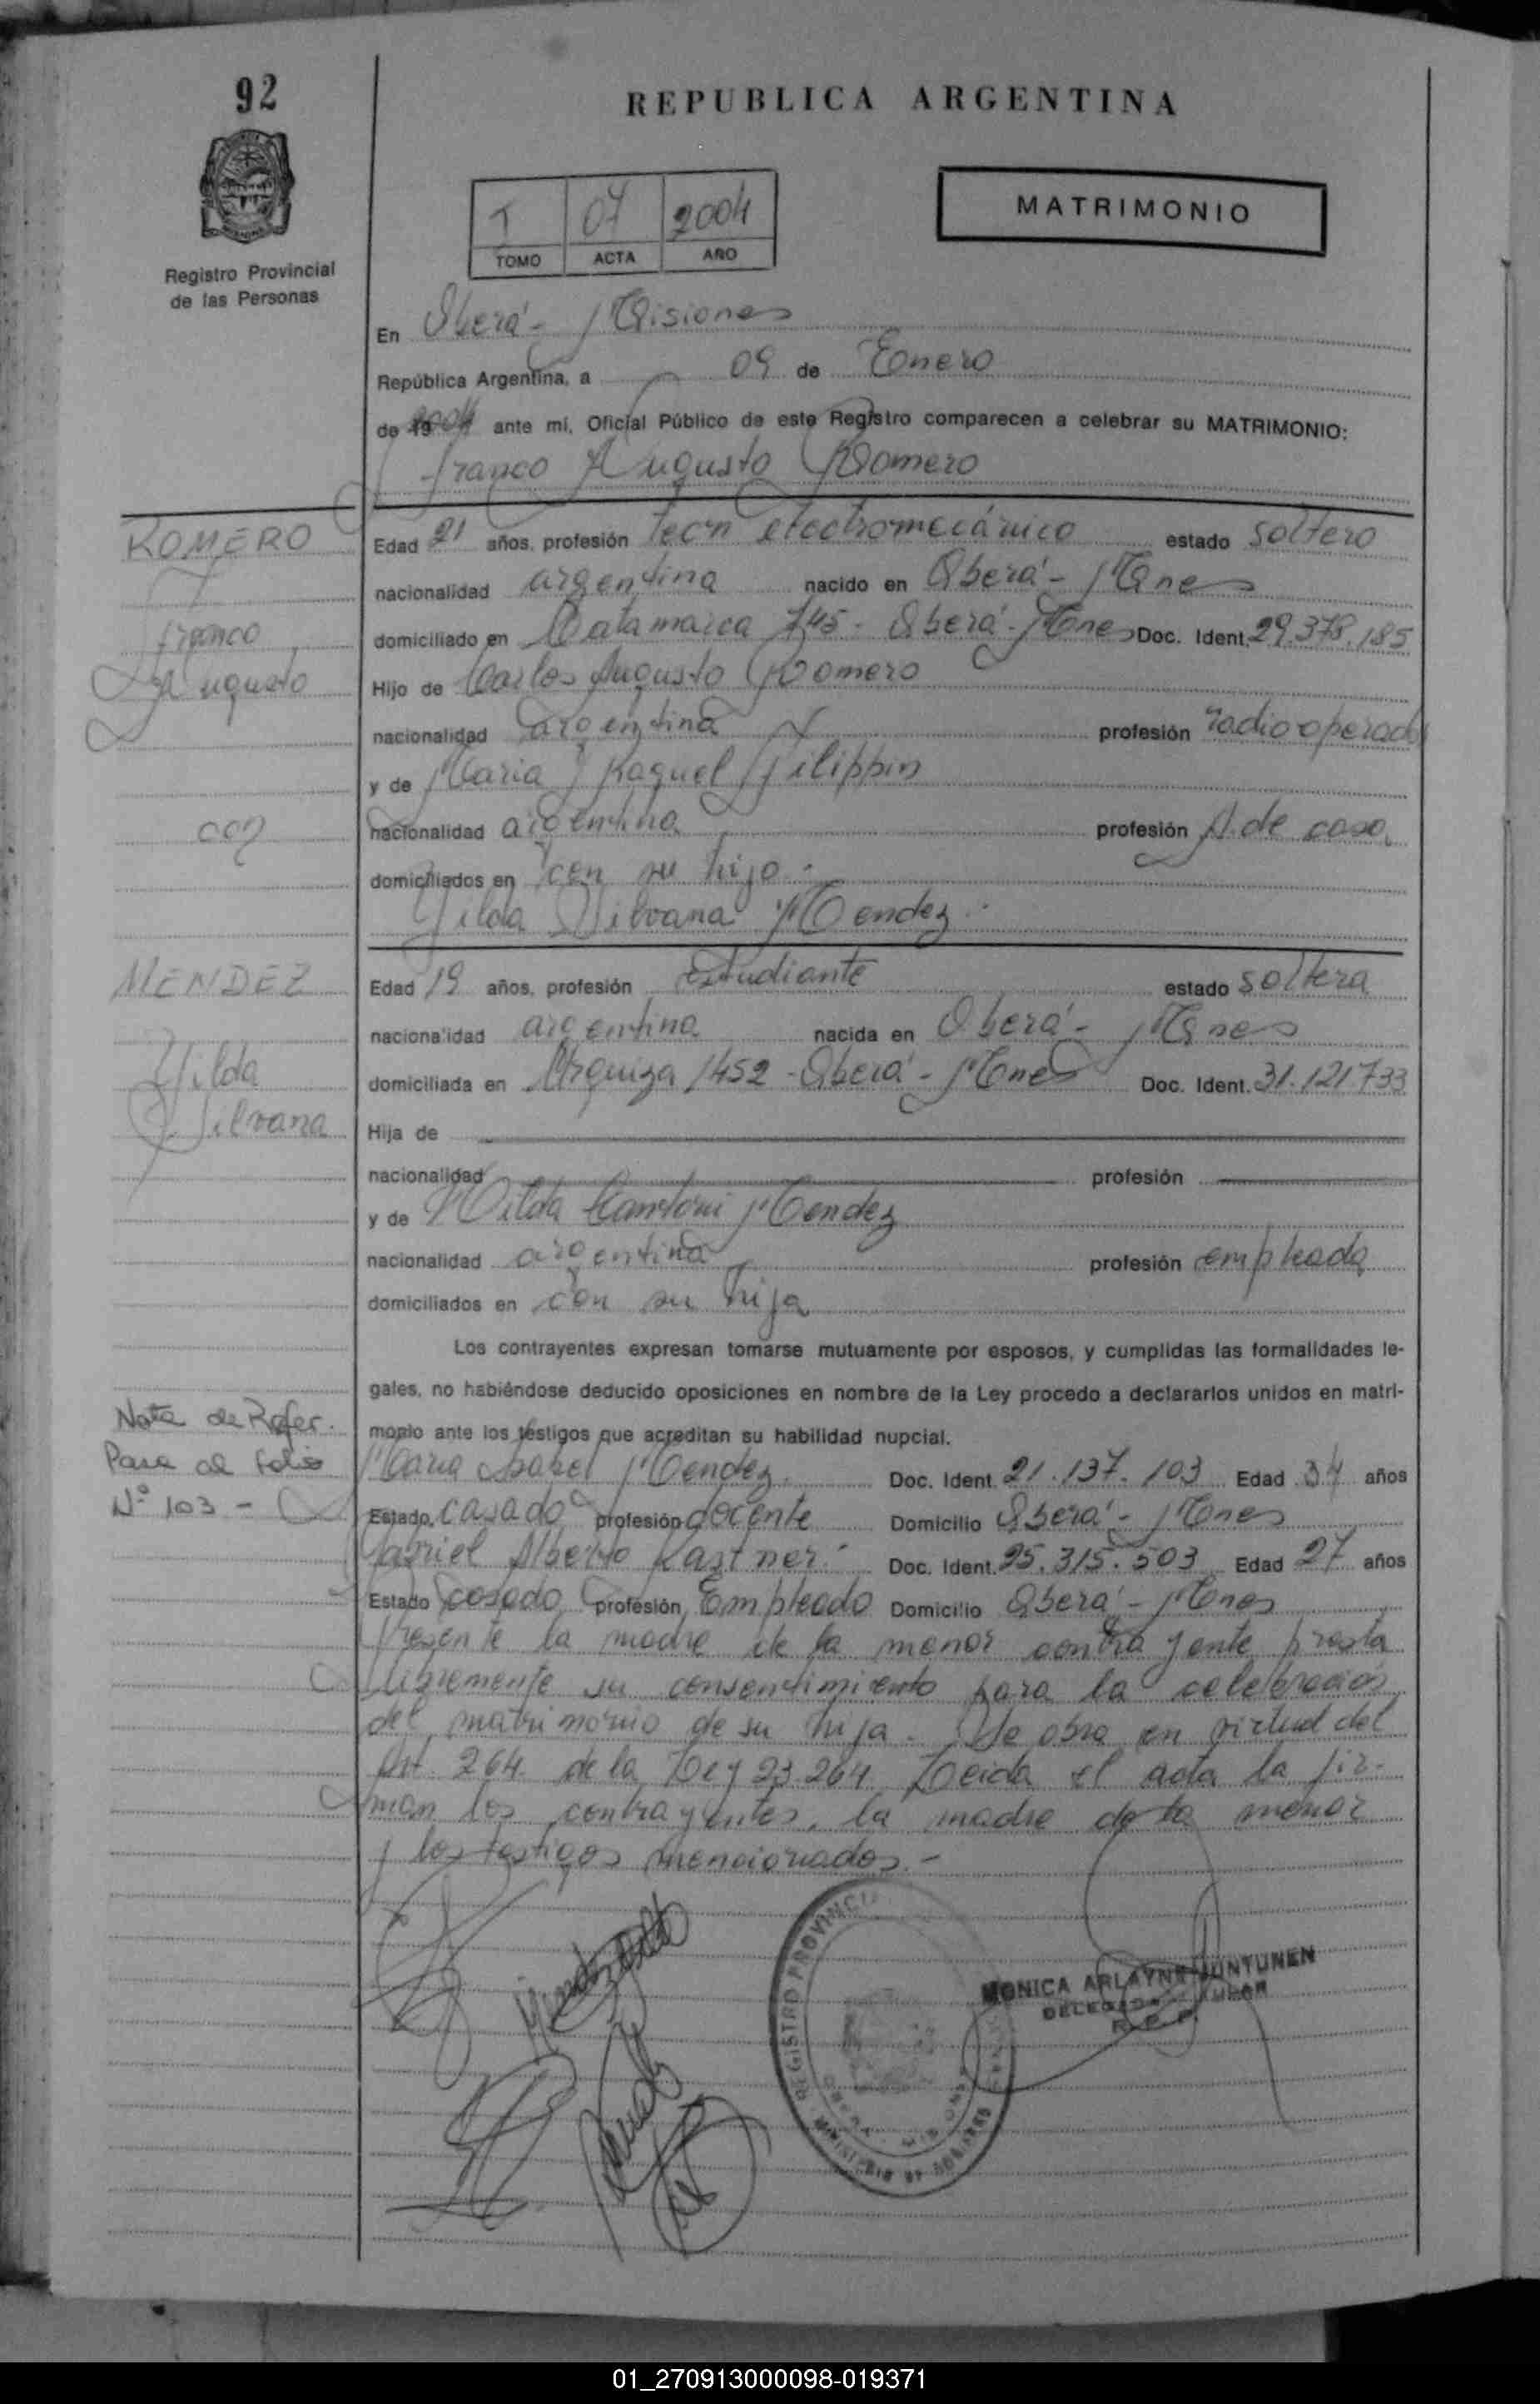 92
REPUBLICA ARGENTINA
Registro Provincial
de las Personas
I 07 2004
TOMO ACTA AÑO
MATRIMONIO
En Oberá - Misiones
República Argentina, a 09 de Enero
de 2004 ante mí, Oficial Público de este Registro comparecen a celebrar su MATRIMONIO:
Franco Augusto Romero
ROMERO
Franco
Augusto
con
MENDEZ
Silvana
Nota de Refer.
Pasa al folio
Nº 103 -
Edad 21 años, profesión tecn electromecánico estado soltero
nacionalidad argentina nacido en Oberá - Mnes
domiciliado en Catamarca 745 - Oberá - Mnes Doc. Ident. 29.378.185
Hijo de Carlos Augusto Romero
nacionalidad argentina profesión radiooperador
y de Maria Raquel Filippin
nacionalidad argentina profesión A. de casa
domiciliados en con su hijo.
Silvana Mendez.
Edad 19 años, profesión Estudiante estado soltera
nacionalidad argentina nacida en Oberá - Mnes
domiciliada en Urquiza 1452 - Oberá - Mnes Doc. Ident. 31.121733
Hija de
nacionalidad profesión
y de Mendez
nacionalidad argentina profesión empleada
domiciliados en con su hija
Los contrayentes expresan tomarse mutuamente por esposos, y cumplidas las formalidades le-
gales, no habiéndose deducido oposiciones en nombre de la Ley procedo a declararlos unidos en matri-
monio ante los testigos que acreditan su habilidad nupcial.
Maria Isabel Mendez Doc. Ident. 21.137.103 Edad 34 años
Estado casado profesión docente Domicilio Oberá - Mnes
Gabriel Alberto Kastner. Doc. Ident. 25.315.503 Edad 27 años
Estado casado profesión Empleado Domicilio Oberá - Mnes
Presente la madre de la menor contrayente presta
libremente su consentimiento para la celebración
del matrimonio de su hija. Se obra en virtud del
Art. 264 de la Ley 23.264. Leida el acta la fir-
man los contrayentes, la madre de la menor
y los testigos mencionados.-
REGISTRO PROVINCI
MINISTERIO DE GOBIERNO
MONICA ARLAYNE HUNTUNEN
01_270913000098-019371